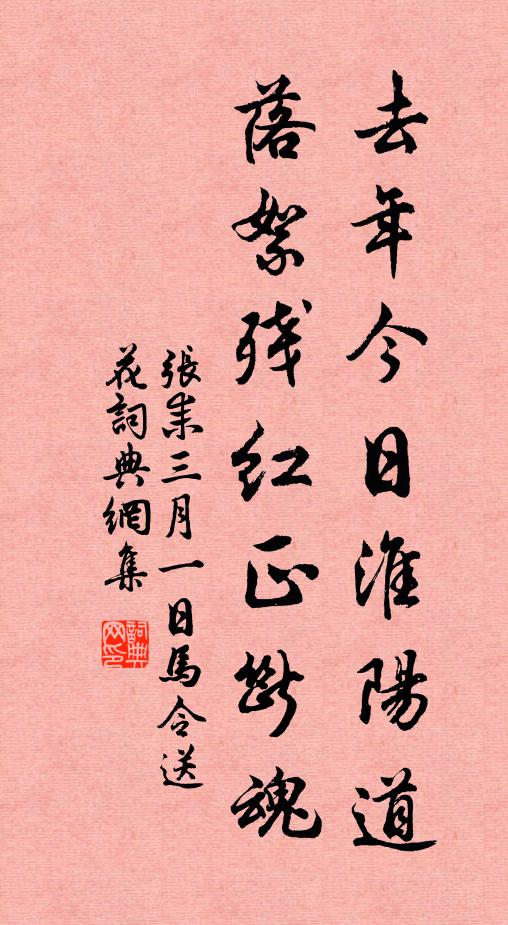 去年今日淮陽道
落絮殘紅正斷魂
張耒三月一日馬令送
花詞典網集
詞典网印